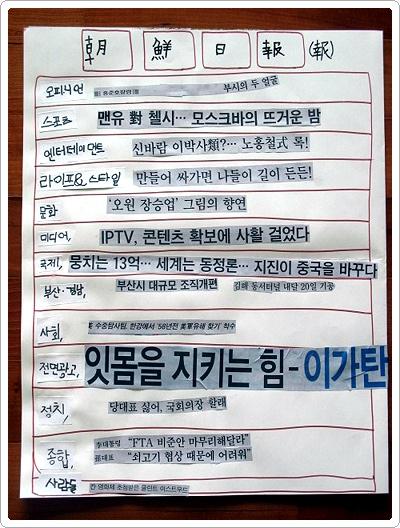 朝 鮮 日 報 (報)
오피니언
부시의 두 얼굴
스포츠 맨유 對 첼시… 모스크바의 뜨거운 밤
엔터테인먼트 신바람 이박사類?… 노홍철式 록!
라이프&스타일 만들어 싸가면 나들이 길이 든든!
문화 '오원 장승업' 그림의 향연
미디어, IPTV, 콘텐츠 확보에 사활 걸었다
국제, 뭉치는 13억… 세계는 동정론… 지진이 중국을 바꾸다
부산·경남, 부산시 대규모 조직개편 김해 동서터널 내달 20일 기공
사회, 美 수중탐사팀, 한강에서 '58년전 美軍유해 찾기' 착수
전면광고, 잇몸을 지키는 힘 - 이가탄
정치, 당대표 싫어, 국회의장 할래
종합, 李대통령 "FTA 비준안 마무리해달라"
孫대표 "쇠고기 협상 때문에 어려워"
사람들 칸 영화제 초청받은 클린트 이스트우드